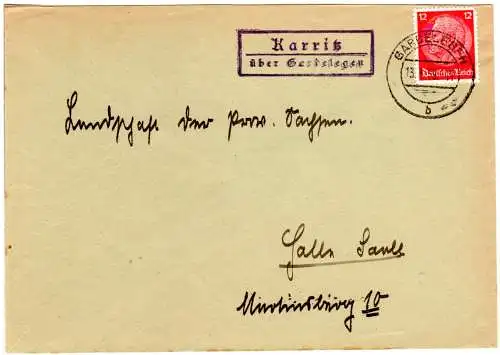 Karritz
über Gardelegen
12 12
Deutsches Reich
GARDELEGEN
b
Landschaft der Prov. Sachsen.
Halle Saale
Martinsberg 10